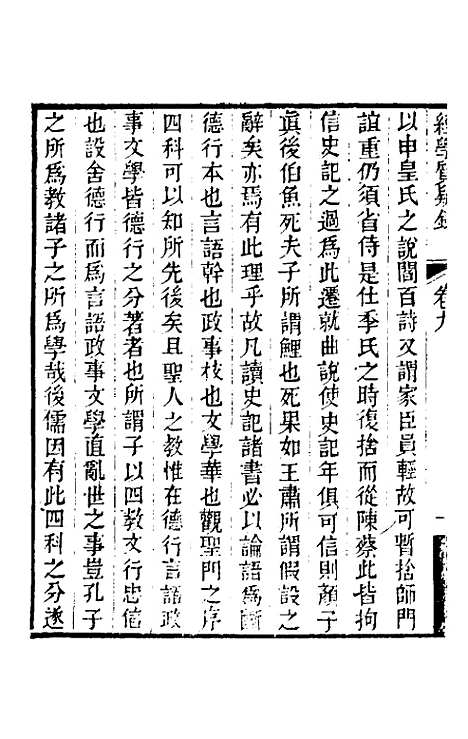 經學質疑錄 卷九
以申皇氏之說閻百詩又謂家臣員輕故可暫捨師門
誼重仍須省侍是仕季氏之時復捨而從陳蔡此皆拘
信史記之過為此遷就曲說使史記年俱可信則顏子
眞後伯魚死夫子所謂鯉也死果如王肅所謂假設之
辭矣亦焉有此理乎故凡讀史記諸書必以論語為斷
德行本也言語幹也政事枝也文學華也觀聖門之序
四科可以知所先後矣且聖人之教惟在德行言語政
事文學皆德行之分著者也所謂子以四教文行忠信
也設舍德行而為言語政事文學直亂世之事豈孔子
之所為教諸子之所為學哉後儒因有此四科之分遂